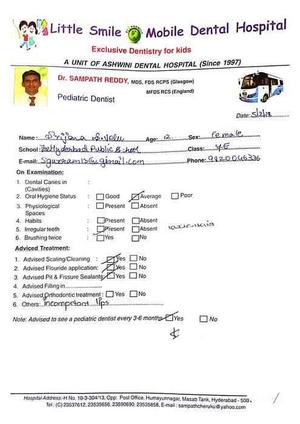 Little Smile Mobile Dental Hospital
Exclusive Dentistry for kids
A UNIT OF ASHWINI DENTAL HOSPITAL (Since 1997)
Dr. SAMPATH REDDY, MDS, FDS RCPS (Glasgow)
MFDS RCS (England)
Pediatric Dentist
Date:
Name: Age: Sex: Female
School: Public School Class:
Email.com Phone:
On Examination:
1. Dental Caries in :
(Cavities)
2. Oral Hygiene Status : Good Average Poor
3. Physiological : Present Absent
Spaces
4. Habits : Present Absent
5. Irregular teeth : Present Absent
6. Brushing twice : Yes No
Adviced Treatment:
1. Advised Scaling/Cleaning : Yes No
2. Advised Flouride application: Yes No
3. Advised Pit & Fissure Sealants Yes No
4. Advised Filling in
5. Advised Orthodontic treatment : Yes No
6. Others: Incompetent lips
Note: Advised to see a pediatric dentist every 3-6 months Yes No
Hospital Address.-H No. 10-3-304/13, Opp: Post Office, Humayunnagar, Masab Tank, Hyderabad - 500
Tel: (C) 23537612, 23535656, 23590690, 23535658. E-mail : sampathcheruku@yahoo.com